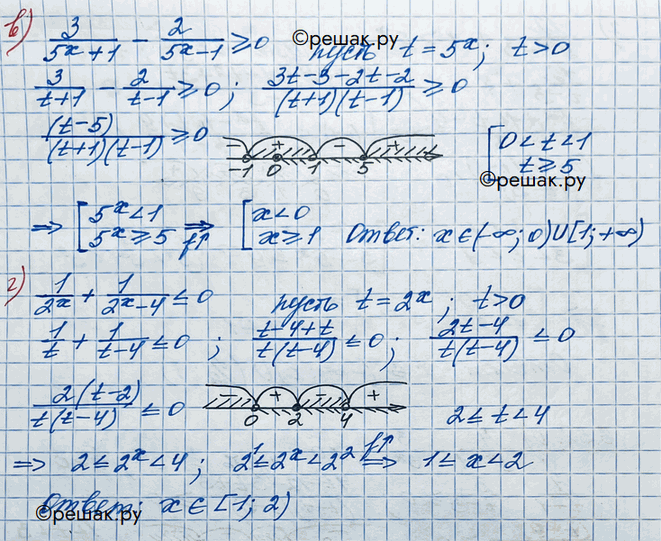 в) 3/(5ˣ+1) − 2/(5ˣ−1) ≥ 0 ©решак.ру пусть t = 5ˣ; t > 0
3/(t+1) − 2/(t−1) ≥ 0; (3t−3−2t−2)/((t+1)(t−1)) ≥ 0
(t−5)/((t+1)(t−1)) ≥ 0 − + − + −1 0 1 5 [0 < t < 1
t ≥ 5
©решак.ру
⇒ [5ˣ < 1 ⇒ [x < 0
5ˣ ≥ 5 f↑ x ≥ 1 Ответ: x ∈ (−∞; 0) ∪ [1; +∞)
г) 1/2ˣ + 1/(2ˣ−4) ≤ 0 пусть t = 2ˣ; t > 0
1/t + 1/(t−4) ≤ 0; (t−4+t)/(t(t−4)) ≤ 0; (2t−4)/(t(t−4)) ≤ 0
2(t−2)/(t(t−4)) ≤ 0 − + − + 0 2 4 2 ≤ t < 4
⇒ 2 ≤ 2ˣ < 4; 2¹ ≤ 2ˣ < 2² f↑ ⇒ 1 ≤ x < 2
Ответ: x ∈ [1; 2)
©решак.ру